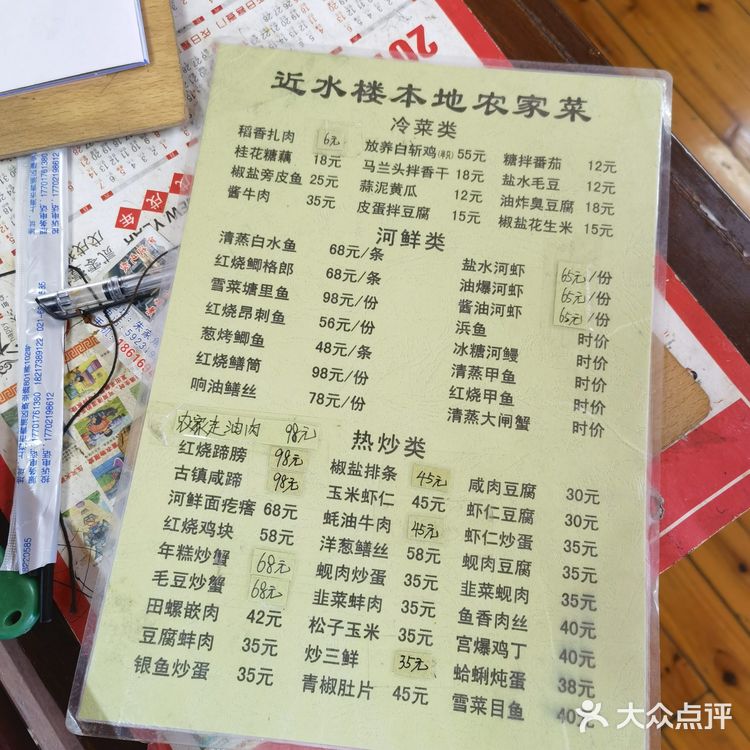 近水楼本地农家菜
冷菜类
稻香扎肉 6元 放养白斩鸡(半只) 55元 糖拌番茄 12元
桂花糖藕 18元 马兰头拌香干 18元 盐水毛豆 12元
椒盐旁皮鱼 25元 蒜泥黄瓜 12元 油炸臭豆腐 18元
酱牛肉 35元 皮蛋拌豆腐 15元 椒盐花生米 15元
河鲜类
清蒸白水鱼 68元/条 盐水河虾 65元/份
红烧鲫格郎 68元/条 油爆河虾 65元/份
雪菜塘里鱼 98元/份 酱油河虾 65元/份
红烧昂刺鱼 56元/份 浜鱼 时价
葱烤鲫鱼 48元/条 冰糖河鳗 时价
红烧鳝筒 98元/份 清蒸甲鱼 时价
响油鳝丝 78元/份 红烧甲鱼 时价
清蒸大闸蟹 时价
农家走油肉 98元
热炒类
红烧蹄膀 98元 椒盐排条 45元 咸肉豆腐 30元
古镇咸蹄 98元 玉米虾仁 45元 虾仁豆腐 30元
河鲜面疙瘩 68元 蚝油牛肉 45元 虾仁炒蛋 35元
红烧鸡块 58元 洋葱鳝丝 58元 蚬肉豆腐 35元
年糕炒蟹 68元 蚬肉炒蛋 35元 韭菜蚬肉 35元
毛豆炒蟹 68元 韭菜蚌肉 35元 鱼香肉丝 40元
田螺嵌肉 42元 松子玉米 35元 宫爆鸡丁 40元
豆腐蚌肉 35元 炒三鲜 35元 蛤蜊炖蛋 38元
银鱼炒蛋 35元 青椒肚片 45元 雪菜目鱼 40元
大众点评